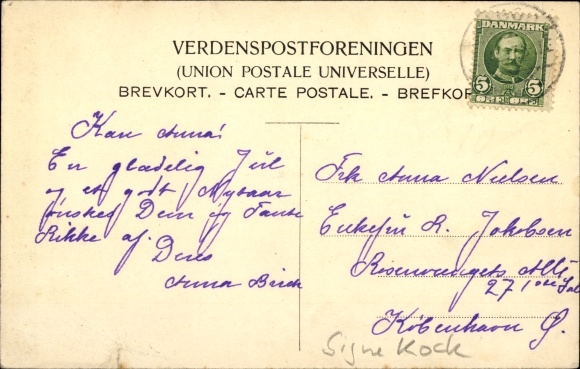 VERDENSPOSTFORENINGEN
(UNION POSTALE UNIVERSELLE)
BREVKORT. - CARTE POSTALE. - BREFKOR
DANMARK
5 5
ØRE ØRE
Kære Anna!
En glædelig Jul
og et godt Nytaar
ønskes Dem og Tante
Rikke af Deres
Anna Birch
Frk Anna Nielsen
Enkefru R. Jakobsen
Rosenvengets Allé
27, Sal
København Ø.
Signe Kock